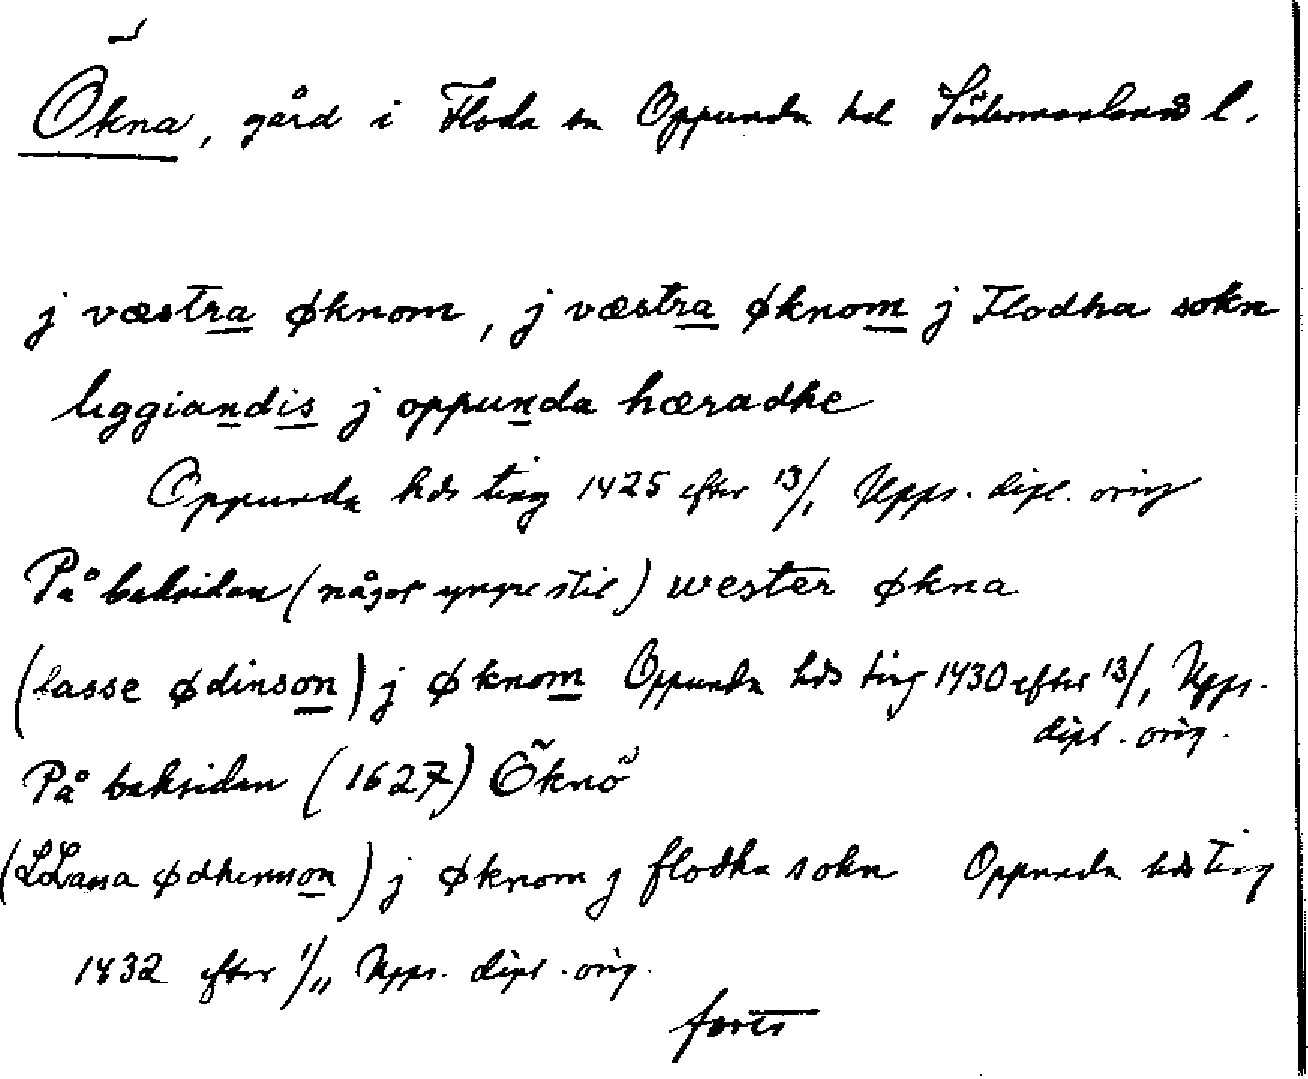 Ökna, gård i Floda sn Oppunda hd Södermanlands l.
j væstra øknom, j væstra øknom j Flodha sokn
liggiandis j oppunda hæradhe
Oppunda hds ting 1425 efter 13/1 Upps. dipl. orig
På baksidan (något yngre stil) wester økna
(lasse ødinson) j øknom Oppunda hds ting 1430 efter 13/1 Upps.
dipl. orig.
På baksidan (1627) Öknö
j øknom j flodha sokn Oppunda hds ting
1432 efter 1/11 Upps. dipl. orig.
forts